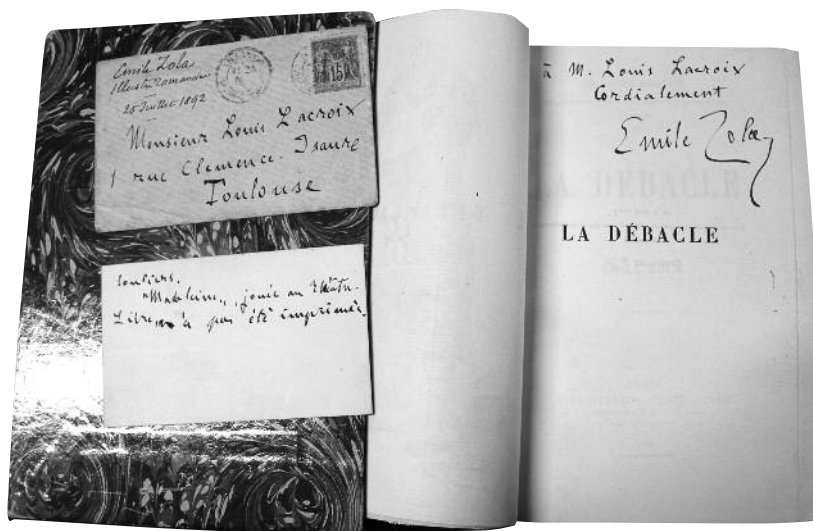 Emile Zola
Illustre romancier
25 Juillet 1892
15
Monsieur Louis Lacroix
1 rue Clémence-Isaure
Toulouse
"Madeleine", jouée au Théâtre-
Libre, n'a pas été imprimée.
à M. Louis Lacroix
Cordialement
Emile Zola
LA DÉBACLE